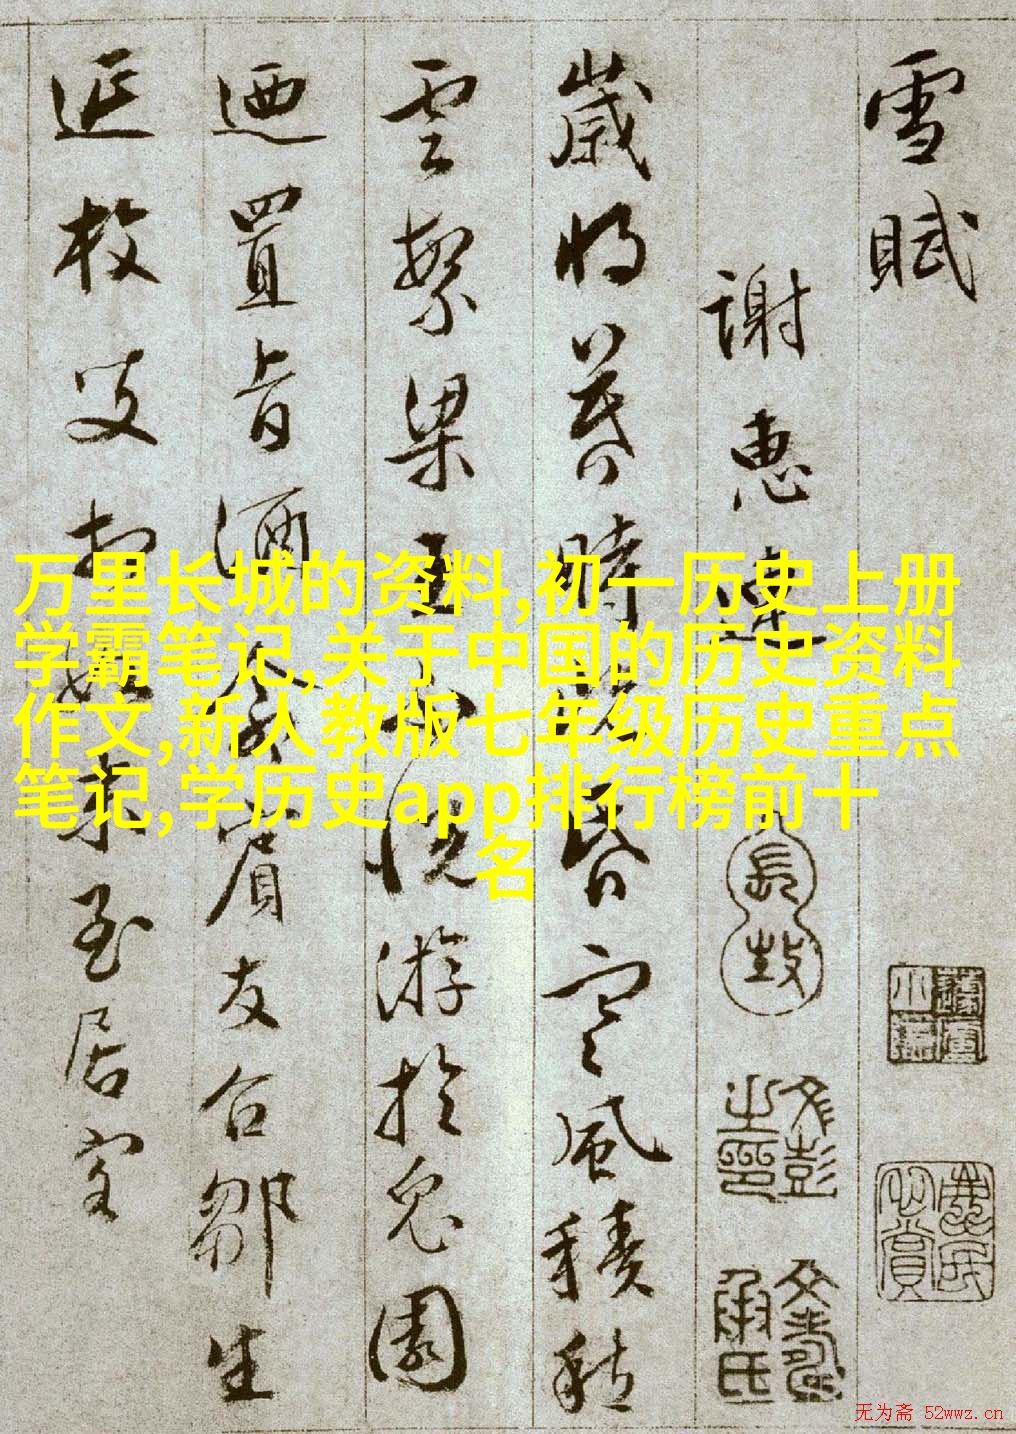 雪賦
謝惠連
歲将暮時既昏寒風積愁
雲繁梁王不悅游於兔園
迺置旨酒命賓友召鄒生
延枚叟相如末至居客
万里长城的资料,初一历史上册
学霸笔记,关于中国的历史资料
作文,新人教版七年级历史重点
笔记,学历史app排行榜前十
名
文彭之印
无为斋 52wwz.cn